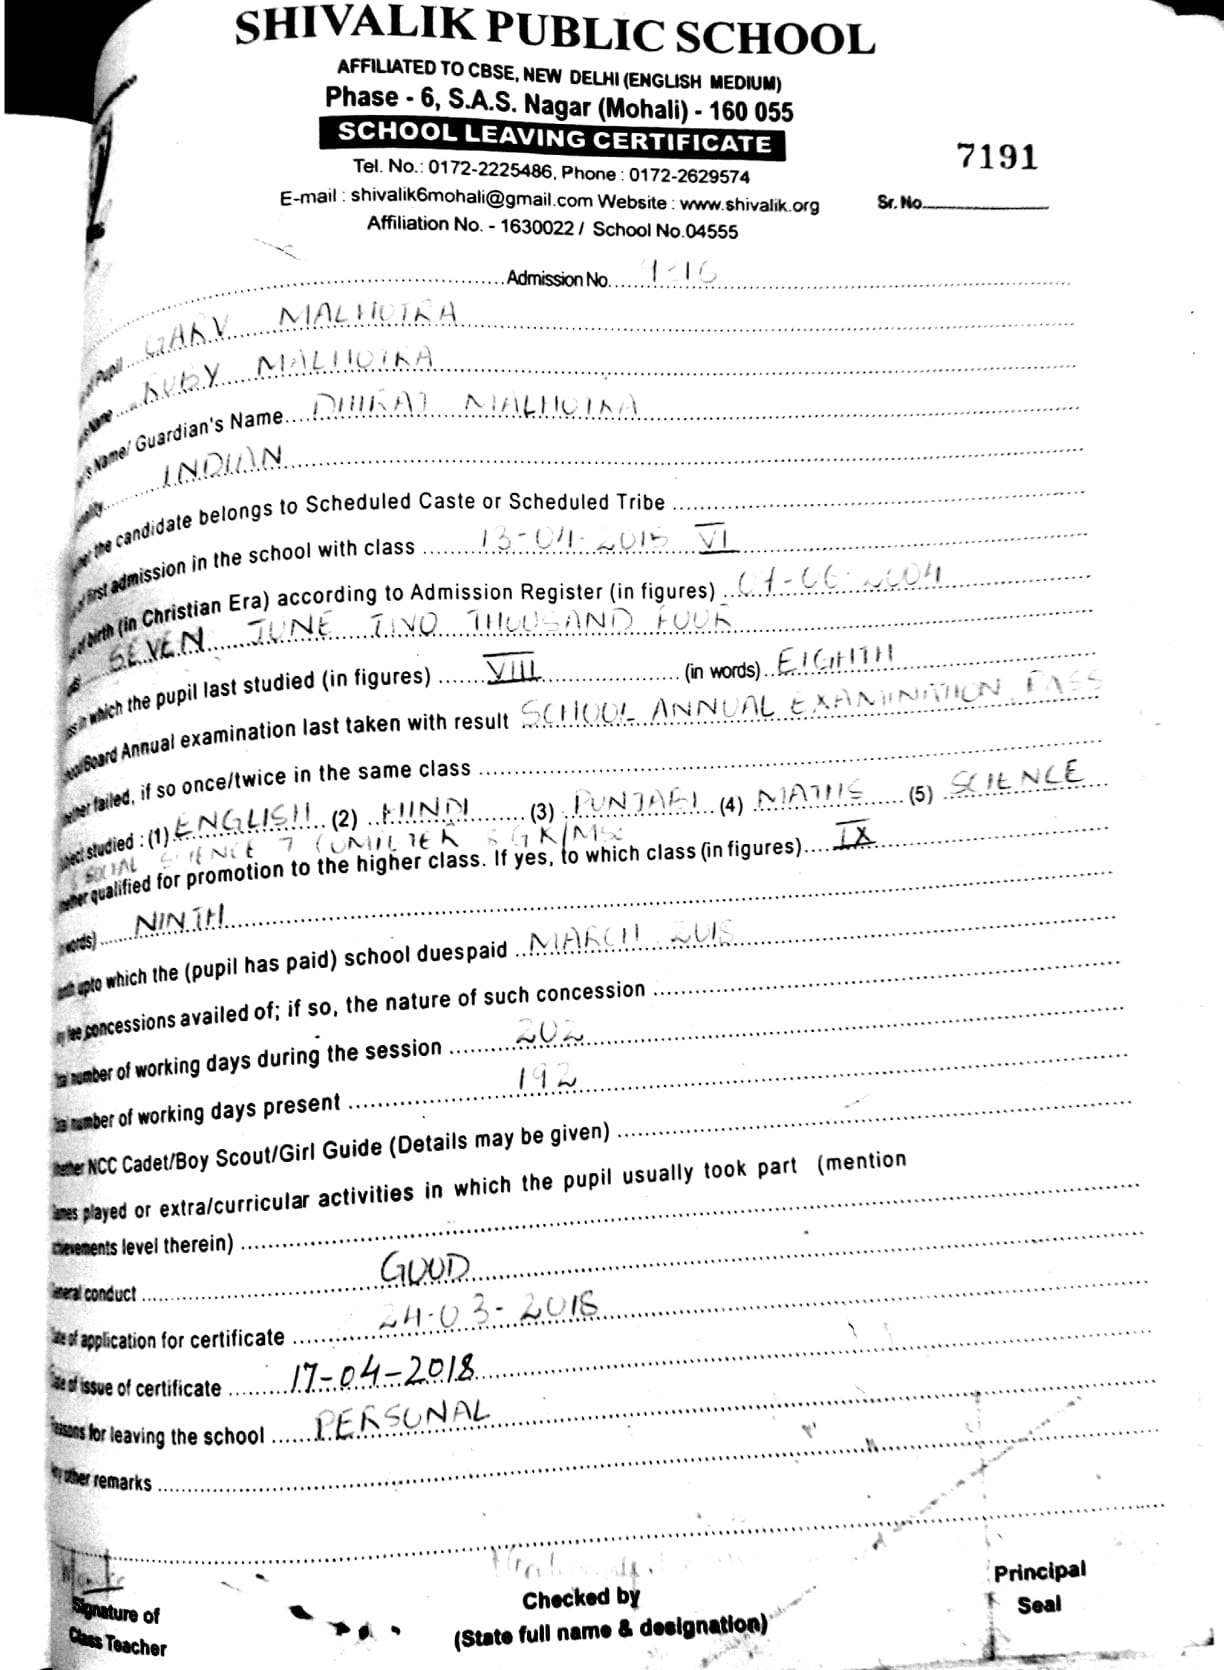 SHIVALIK PUBLIC SCHOOL
AFFILIATED TO CBSE, NEW DELHI (ENGLISH MEDIUM)
Phase - 6, S.A.S. Nagar (Mohali) - 160 055
SCHOOL LEAVING CERTIFICATE
7191
Tel. No.: 0172-2225486, Phone : 0172-2629574
E-mail : shivalik6mohali@gmail.com Website : www.shivalik.org
Sr. No.
Affiliation No. - 1630022 / School No.04555
Admission No.
of Pupil GARV MALHOTRA
Name RUBY MALHOTRA
Name/ Guardian's Name DHIRAJ MALHOTRA
INDIAN
the candidate belongs to Scheduled Caste or Scheduled Tribe
of first admission in the school with class 13-04-2015 VI
of birth (in Christian Era) according to Admission Register (in figures) 07-06-2004
SEVEN JUNE TWO THOUSAND FOUR
in which the pupil last studied (in figures) VIII (in words) EIGHTH
Board Annual examination last taken with result SCHOOL ANNUAL EXAMINATION, PASS
failed, if so once/twice in the same class
studied : (1) ENGLISH (2) HINDI (3) PUNJABI (4) MATHS (5) SCIENCE
SOCIAL SCIENCE 7 COMPUTER 8 GK/MSC
qualified for promotion to the higher class. If yes, to which class (in figures) IX
words) NINTH
upto which the (pupil has paid) school duespaid MARCH 2018
fee concessions availed of; if so, the nature of such concession
number of working days during the session 202
number of working days present 192
NCC Cadet/Boy Scout/Girl Guide (Details may be given)
Games played or extra/curricular activities in which the pupil usually took part (mention
achievements level therein)
General conduct GOOD
Date of application for certificate 24-03-2018
Date of issue of certificate 17-04-2018
Reasons for leaving the school PERSONAL
other remarks
Signature of
Class Teacher
Checked by
(State full name & designation)
Principal
Seal